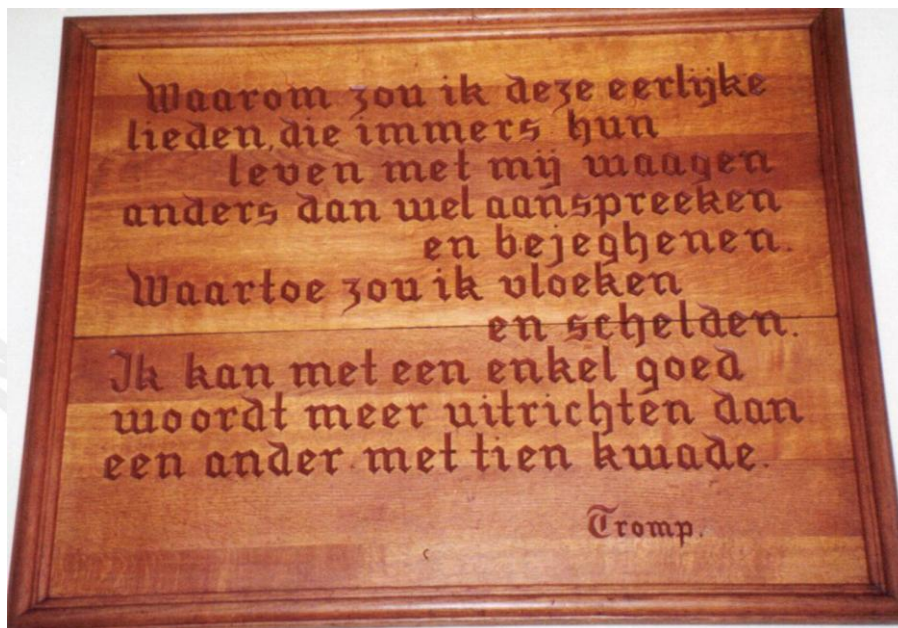 Waarom zou ik deze eerlijke
lieden, die immers hun
leven met mij waagen
anders dan wel aanspreeken
en bejeghenen.
Waartoe zou ik vloeken
en schelden.
Ik kan met een enkel goed
woordt meer uitrichten dan
een ander met tien kwade.
Tromp.